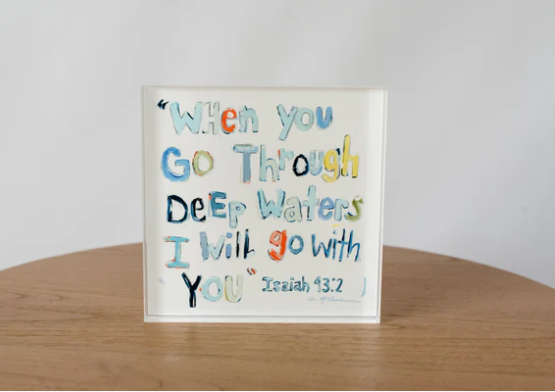 "When you
Go Through
Deep Waters
I Will go with
YOU" Isaiah 43:2